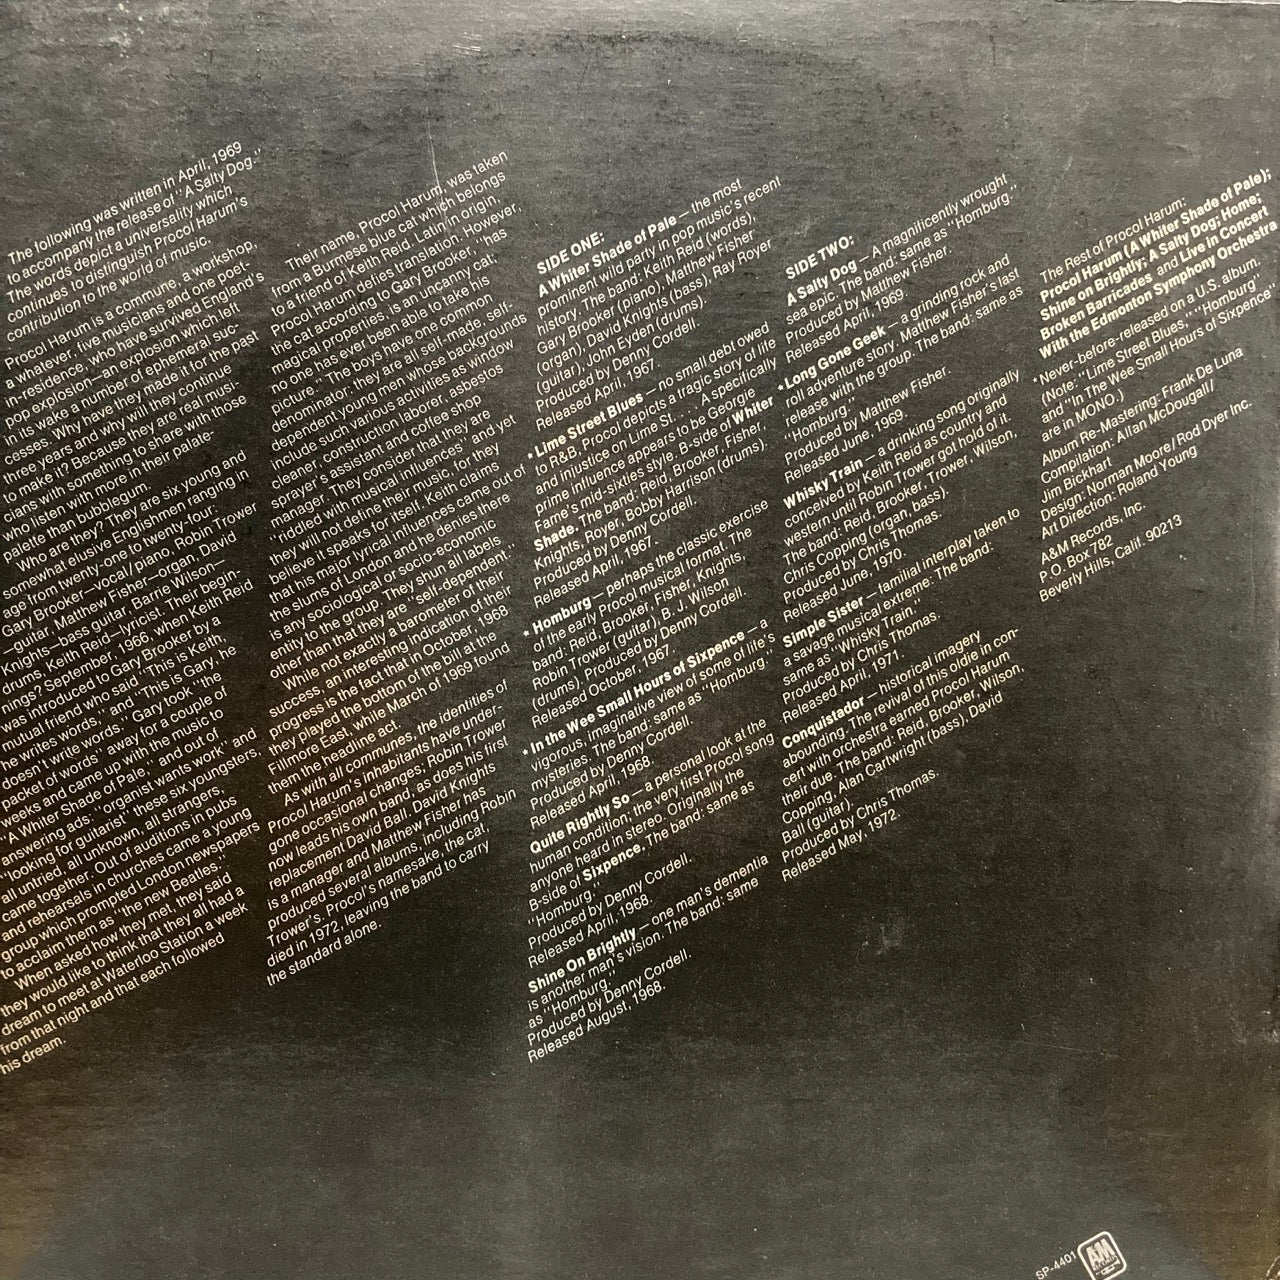 The following was written in April, 1969
to accompany the release of "A Salty Dog."
The words depict a universality which
continues to distinguish Procol Harum's
contribution to the world of music.
Procol Harum is a commune, a workshop,
a whatever, five musicians and one poet-
in-residence, who have survived England's
pop explosion—an explosion which left
in its wake a number of ephemeral suc-
cesses. Why have they made it for the past
three years and why will they continue
to make it? Because they are real musi-
cians with something to share with those
who listen with more in their palate-
palette than bubblegum.
Who are they? They are six young and
somewhat elusive Englishmen ranging in
age from twenty-one to twenty-four:
Gary Brooker—vocal/piano, Robin Trower
—guitar, Matthew Fisher—organ, David
Knights—bass guitar, Barrie Wilson—
drums, Keith Reid—lyricist. Their begin-
nings? September, 1966, when Keith Reid
was introduced to Gary Brooker by a
mutual friend who said "This is Keith,
he writes words," and "This is Gary, he
doesn't write words." Gary took "the
packet of words" away for a couple of
weeks and came up with the music to
"A Whiter Shade of Pale," and out of
answering ads: "organist wants work" and
"looking for guitarist" these six youngsters,
all untried, all unknown, all strangers,
came together. Out of auditions in pubs
and rehearsals in churches came a young
group which prompted London newspapers
to acclaim them as "the new Beatles."
When asked how they met, they said
they would like to think that they all had a
dream to meet at Waterloo Station a week
from that night and that each followed
his dream.
Their name, Procol Harum, was taken
from a Burmese blue cat which belongs
to a friend of Keith Reid. Latin in origin,
Procol Harum denies translation. However,
the cat according to Gary Brooker, "has
magical properties, is an uncanny cat;
no one has ever been able to take his
picture." The boys have one common
denominator: they are all self-made, self-
dependent young men whose backgrounds
include such various activities as window
cleaner, construction laborer, asbestos
sprayer's assistant and coffee shop
manager. They consider that they are
"riddled with musical influences" and yet
they will not define their music, for they
believe it speaks for itself. Keith claims
that his major lyrical influences came out of
the slums of London and he denies there
is any sociological or socio-economic
entity to the group. They shun all labels
other than that they are "self-dependent."
While not exactly a barometer of their
success, an interesting indication of their
progress is the fact that in October, 1968
they played the bottom of the bill at the
Fillmore East, while March of 1969 found
them the headline act.
As with all communes, the identities of
Procol Harum's inhabitants have under-
gone occasional changes; Robin Trower
now leads his own band, as does his first
replacement David Ball. David Knights
is a manager and Matthew Fisher has
produced several albums, including Robin
Trower's. Procol's namesake, the cat,
died in 1972, leaving the band to carry
the standard alone.
SIDE ONE:
A Whiter Shade of Pale — the most
prominent wild party in pop music's recent
history. The band: Keith Reid (words),
Gary Brooker (piano), Matthew Fisher
(organ), David Knights (bass), Ray Royer
(guitar), John Eyden (drums).
Produced by Denny Cordell.
Released April, 1967.
*Lime Street Blues — no small debt owed
to R&B, Procol depicts a tragic story of life
and injustice on Lime St. . . . A specifically
prime influence appears to be Georgie
Fame's mid-sixties style. B-side of Whiter
Shade. The band: Reid, Brooker, Fisher,
Knights, Royer, Bobby Harrison (drums).
Produced by Denny Cordell.
Released April, 1967.
*Homburg — perhaps the classic exercise
of the early Procol musical format. The
band: Reid, Brooker, Fisher, Knights,
Robin Trower (guitar), B. J. Wilson
(drums). Produced by Denny Cordell.
Released October, 1967.
*In the Wee Small Hours of Sixpence — a
vigorous, imaginative view of some of life's
mysteries. The band: same as "Homburg."
Produced by Denny Cordell.
Released April, 1968.
Quite Rightly So — a personal look at the
human condition; the very first Procol song
anyone heard in stereo. Originally the
B-side of Sixpence. The band: same as
"Homburg."
Produced by Denny Cordell.
Released April, 1968.
Shine On Brightly — one man's dementia
is another man's vision. The band: same
as "Homburg."
Produced by Denny Cordell.
Released August, 1968.
SIDE TWO:
A Salty Dog — A magnificently wrought
sea epic. The band: same as "Homburg."
Produced by Matthew Fisher.
Released April, 1969.
*Long Gone Geek — a grinding rock and
roll adventure story. Matthew Fisher's last
release with the group. The band: same as
"Homburg."
Produced by Matthew Fisher.
Released June, 1969.
Whisky Train — a drinking song originally
conceived by Keith Reid as country and
western until Robin Trower got hold of it.
The band: Reid, Brooker, Trower, Wilson,
Chris Copping (organ, bass).
Produced by Chris Thomas.
Released June, 1970.
Simple Sister — familial interplay taken to
a savage musical extreme. The band:
same as "Whisky Train."
Produced by Chris Thomas.
Released April, 1971.
Conquistador — historical imagery
abounding. The revival of this oldie in con-
cert with orchestra earned Procol Harum
their due. The band: Reid, Brooker, Wilson,
Copping, Alan Cartwright (bass), David
Ball (guitar).
Produced by Chris Thomas.
Released May, 1972.
The Rest of Procol Harum:
Procol Harum (A Whiter Shade of Pale);
Shine on Brightly; A Salty Dog; Home;
Broken Barricades and Live in Concert
With the Edmonton Symphony Orchestra
*Never-before-released on a U.S. album.
(Note: "Lime Street Blues," "Homburg"
and "In the Wee Small Hours of Sixpence"
are in MONO.)
Album Re-Mastering: Frank De Luna
Compilation: Allan McDougall/
Jim Bickhart
Design: Norman Moore/Rod Dyer Inc.
Art Direction: Roland Young
A&M Records, Inc.
P.O. Box 782
Beverly Hills, Calif. 90213
SP-4401
A&M
RECORDS